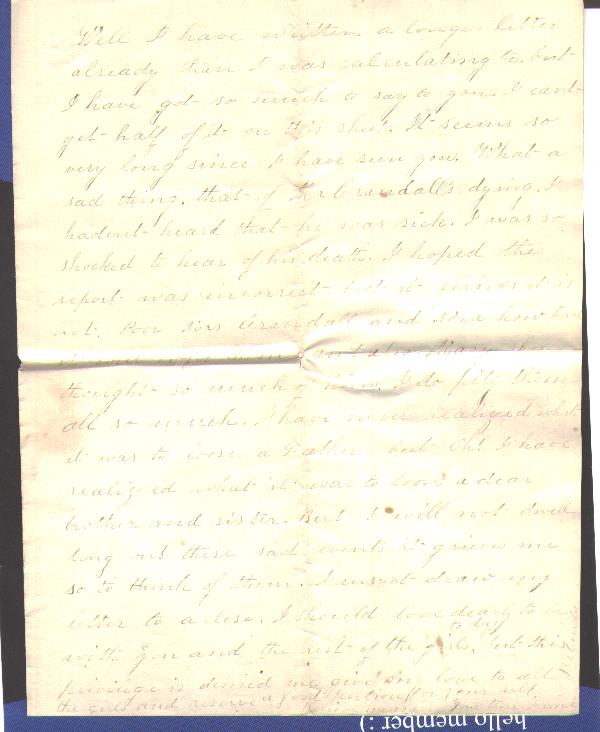 Well I have written a longer letter
already than I was calculating to. but
I have got so much to say to you. I cant
get half of it on this sheet. It seems so
very long since I have seen you. What a
sad thing, that of Mr Crandall's dying. I
hadent heard that he was sick. I was so
shocked to hear of his death. I hoped the
report was incorrect but it seems it is
not. Poor Mrs Crandall and Ida how hard
and also Mary she
thought so much of him. I do pity them
all so much. I have never realized what
it was to loose a Father but Oh! I have
realized what it was to loose a dear
brother and sister. But I will not dwell
long on these sad events it grieves me
so to think of them. I must draw my
letter to a close. I should love dearly to be
with you and the rest of the girls to day, but this
privilege is denied me give my love to all
the girls and reserve a good portion for your self
hello member :)